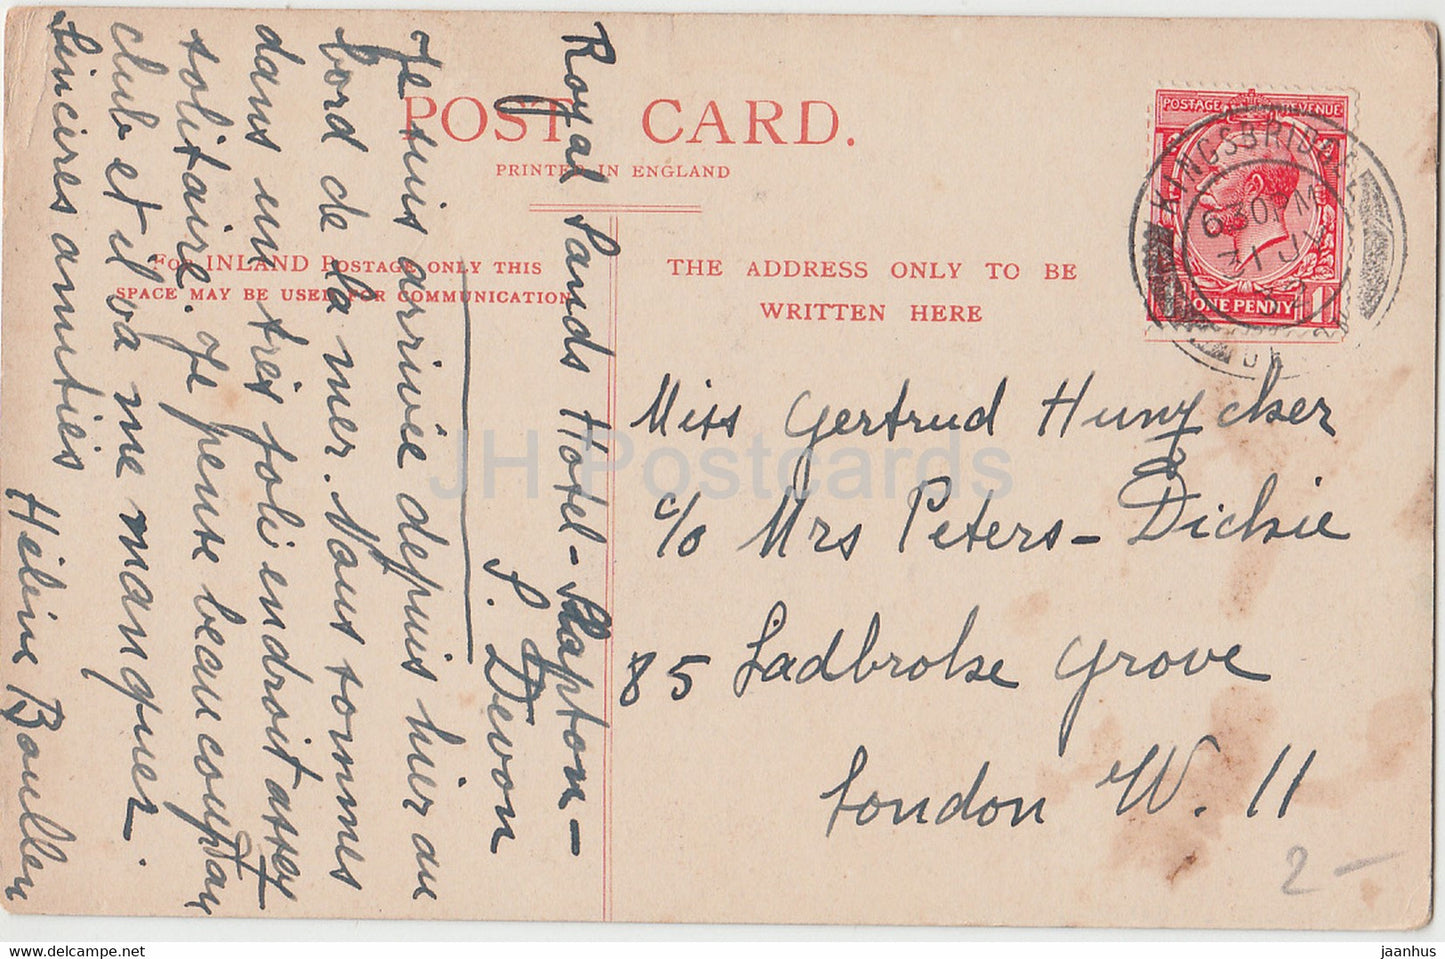 POST CARD.
PRINTED IN ENGLAND
FOR INLAND POSTAGE ONLY THIS
SPACE MAY BE USED FOR COMMUNICATION
THE ADDRESS ONLY TO BE
WRITTEN HERE
POSTAGE REVENUE
ONE PENNY
KINGSBRIDGE
630PM
31 JY
32
Royal Sands Hotel - Slapton -
S. Devon
Je suis arrivée depuis hier au
bord de la mer. Nous sommes
dans un très joli endroit assez
solitaire. Je pense beaucoup au
club et il va me manquer.
Sincères amitiés
Hélène Boullen
Miss Gertrud Hunzicker
c/o Mrs Peters - Dickie
85 Ladbroke Grove
London W. 11
2 -
JH Postcards
www.delcampe.net
jaanhus